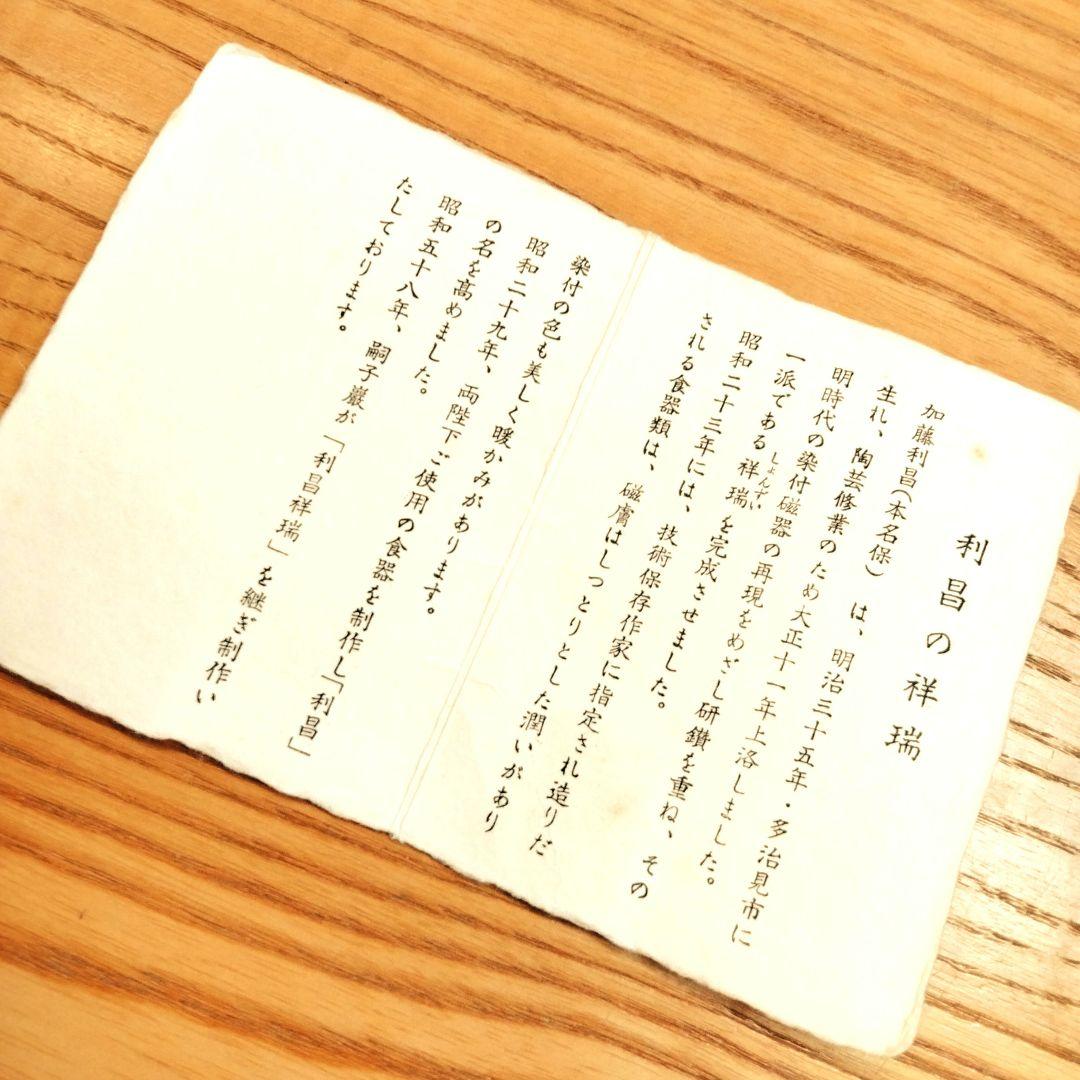 利昌の祥瑞
加藤利昌(本名保)は、明治三十五年・多治見市に
生れ、陶芸修業のため大正十一年上洛しました。
明時代の染付磁器の再現をめざし研鑽を重ね、その
一派である祥瑞を完成させました。
しょんずい
昭和二十三年には、技術保存作家に指定され造りだ
される食器類は、磁膚はしっとりとした潤いがあり
染付の色も美しく暖かみがあります。
昭和二十九年、両陛下ご使用の食器を制作し「利昌」
の名を高めました。
昭和五十八年、嗣子巌が「利昌祥瑞」を継ぎ制作い
たしております。